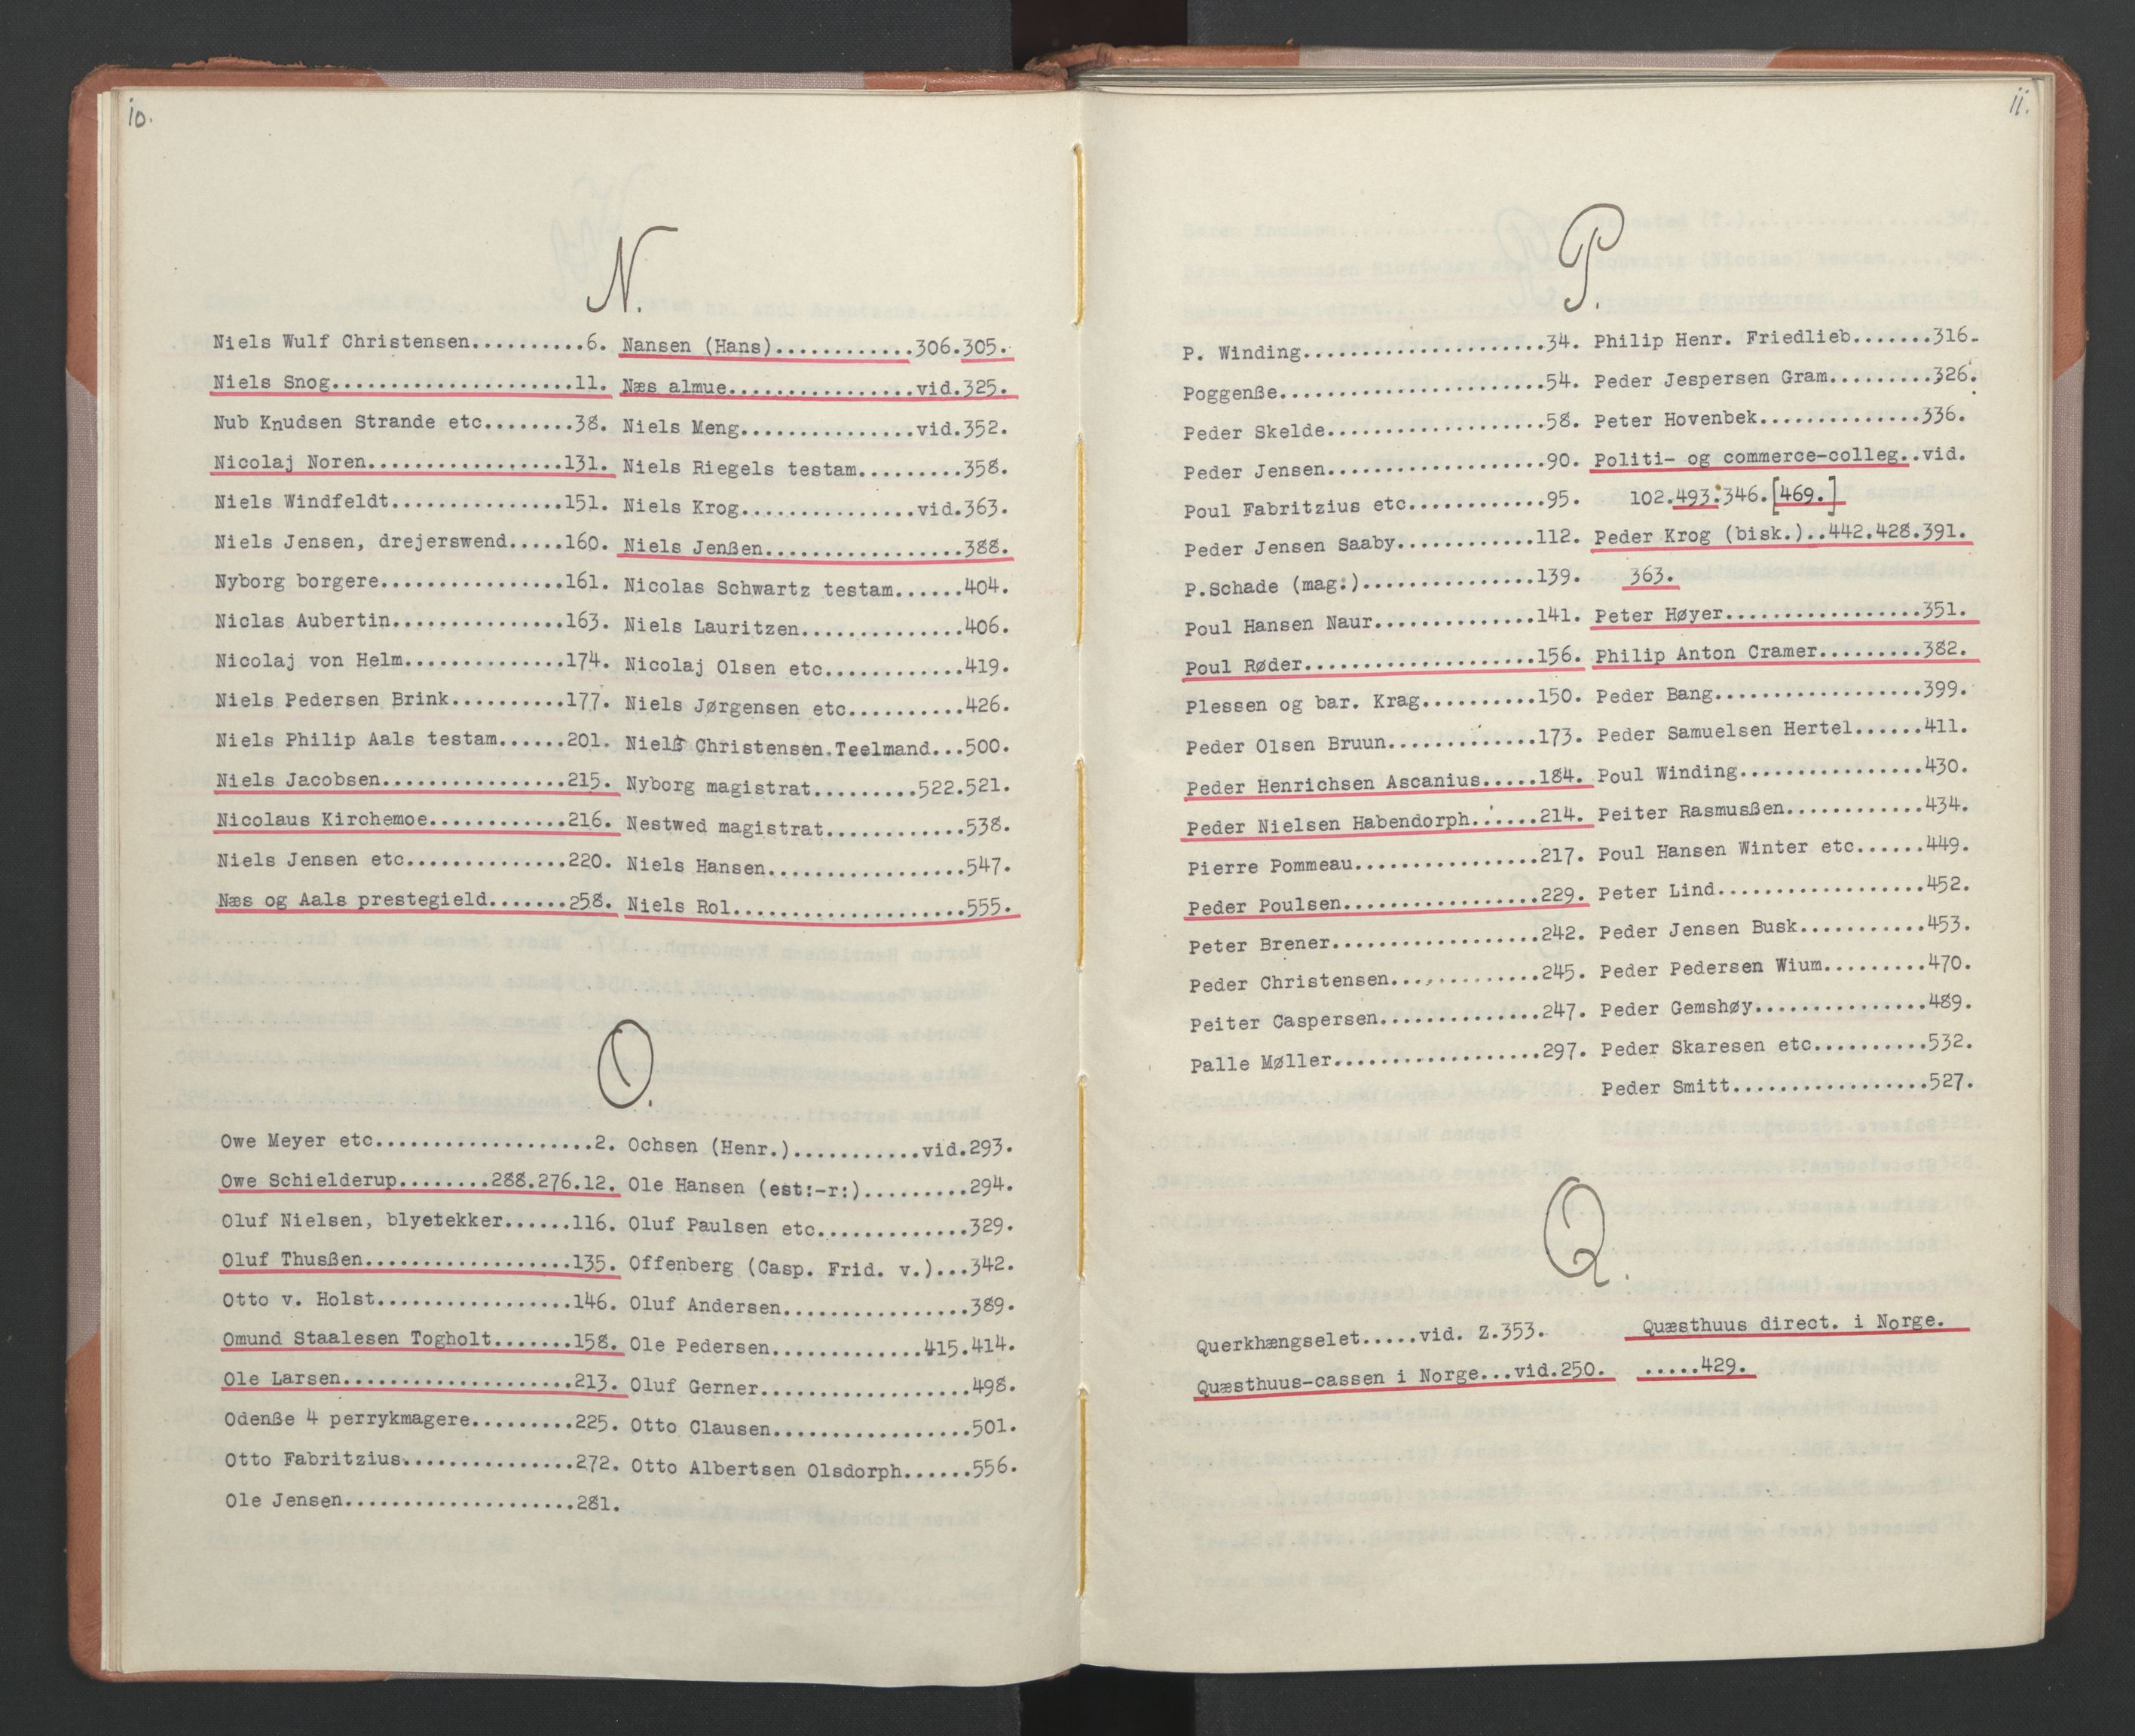 10.
N.
Niels Wulf Christensen..........6.
Niels Snog.....................11.
Nub Knudsen Strande etc........38.
Nicolaj Noren.................131.
Niels Windfeldt...............151.
Niels Jensen, drejerswend.....160.
Nyborg borgere................161.
Niclas Aubertin...............163.
Nicolaj von Helm..............174.
Niels Pedersen Brink..........177.
Niels Philip Aals testam......201.
Niels Jacobsen................215.
Nicolaus Kirchemoe............216.
Niels Jensen etc..............220.
Næs og Aals prestegield.......258.
Nansen (Hans)............306.305.
Næs almue................vid.325.
Niels Meng...............vid.352.
Niels Riegels testam.........358.
Niels Krog...............vid.363.
Niels Jenßen.................388.
Nicolas Schwartz testam......404.
Niels Lauritzen..............406.
Nicolaj Olsen etc............419.
Niels Jørgensen etc..........426.
Niels Christensen.Teelmand...500.
Nyborg magistrat.........522.521.
Nestwed magistrat............538.
Niels Hansen.................547.
Niels Rol....................555.
O.
Owe Meyer etc...................2.
Owe Schielderup........288.276.12.
Oluf Nielsen, blyetekker......116.
Oluf Thusßen..................135.
Otto v. Holst.................146.
Omund Staalesen Togholt.......158.
Ole Larsen....................213.
Odenße 4 perrykmagere.........225.
Otto Fabritzius...............272.
Ole Jensen....................281.
Ochsen (Henr.)...........vid.293.
Ole Hansen (est:-r:).........294.
Oluf Paulsen etc.............329.
Offenberg (Casp. Frid. v.)...342.
Oluf Andersen................389.
Ole Pedersen.............415.414.
Oluf Gerner..................498.
Otto Clausen.................501.
Otto Albertsen Olsdorph......556.
11.
P.
P. Winding.....................34.
Poggenße.......................54.
Peder Skelde...................58.
Peder Jensen...................90.
Poul Fabritzius etc............95.
Peder Jensen Saaby............112.
P.Schade (mag:)...............139.
Poul Hansen Naur..............141.
Poul Røder....................156.
Plessen og bar. Krag..........150.
Peder Olsen Bruun.............173.
Peder Henrichsen Ascanius.....184.
Peder Nielsen Habendorph......214.
Pierre Pommeau................217.
Peder Poulsen.................229.
Peter Brener..................242.
Peder Christensen.............245.
Peiter Caspersen..............247.
Palle Møller..................297.
Philip Henr. Friedlieb.......316.
Peder Jespersen Gram.........326.
Peter Hovenbek...............336.
Politi- og commerce-colleg..vid.
102.493.346.[469.]
Peder Krog (bisk.)..442.428.391.
363.
Peter Høyer.................351.
Philip Anton Cramer.........382.
Peder Bang..................399.
Peder Samuelsen Hertel......411.
Poul Winding................430.
Peiter Rasmusßen............434.
Poul Hansen Winter etc......449.
Peter Lind..................452.
Peder Jensen Busk...........453.
Peder Pedersen Wium.........470.
Peder Gemshøy...............489.
Peder Skaresen etc..........532.
Peder Smitt.................527.
Q.
Querkhængselet.....vid. Z.353.
Quæsthuus-cassen i Norge...vid.250.
Quæsthuus direct. i Norge.
.....429.